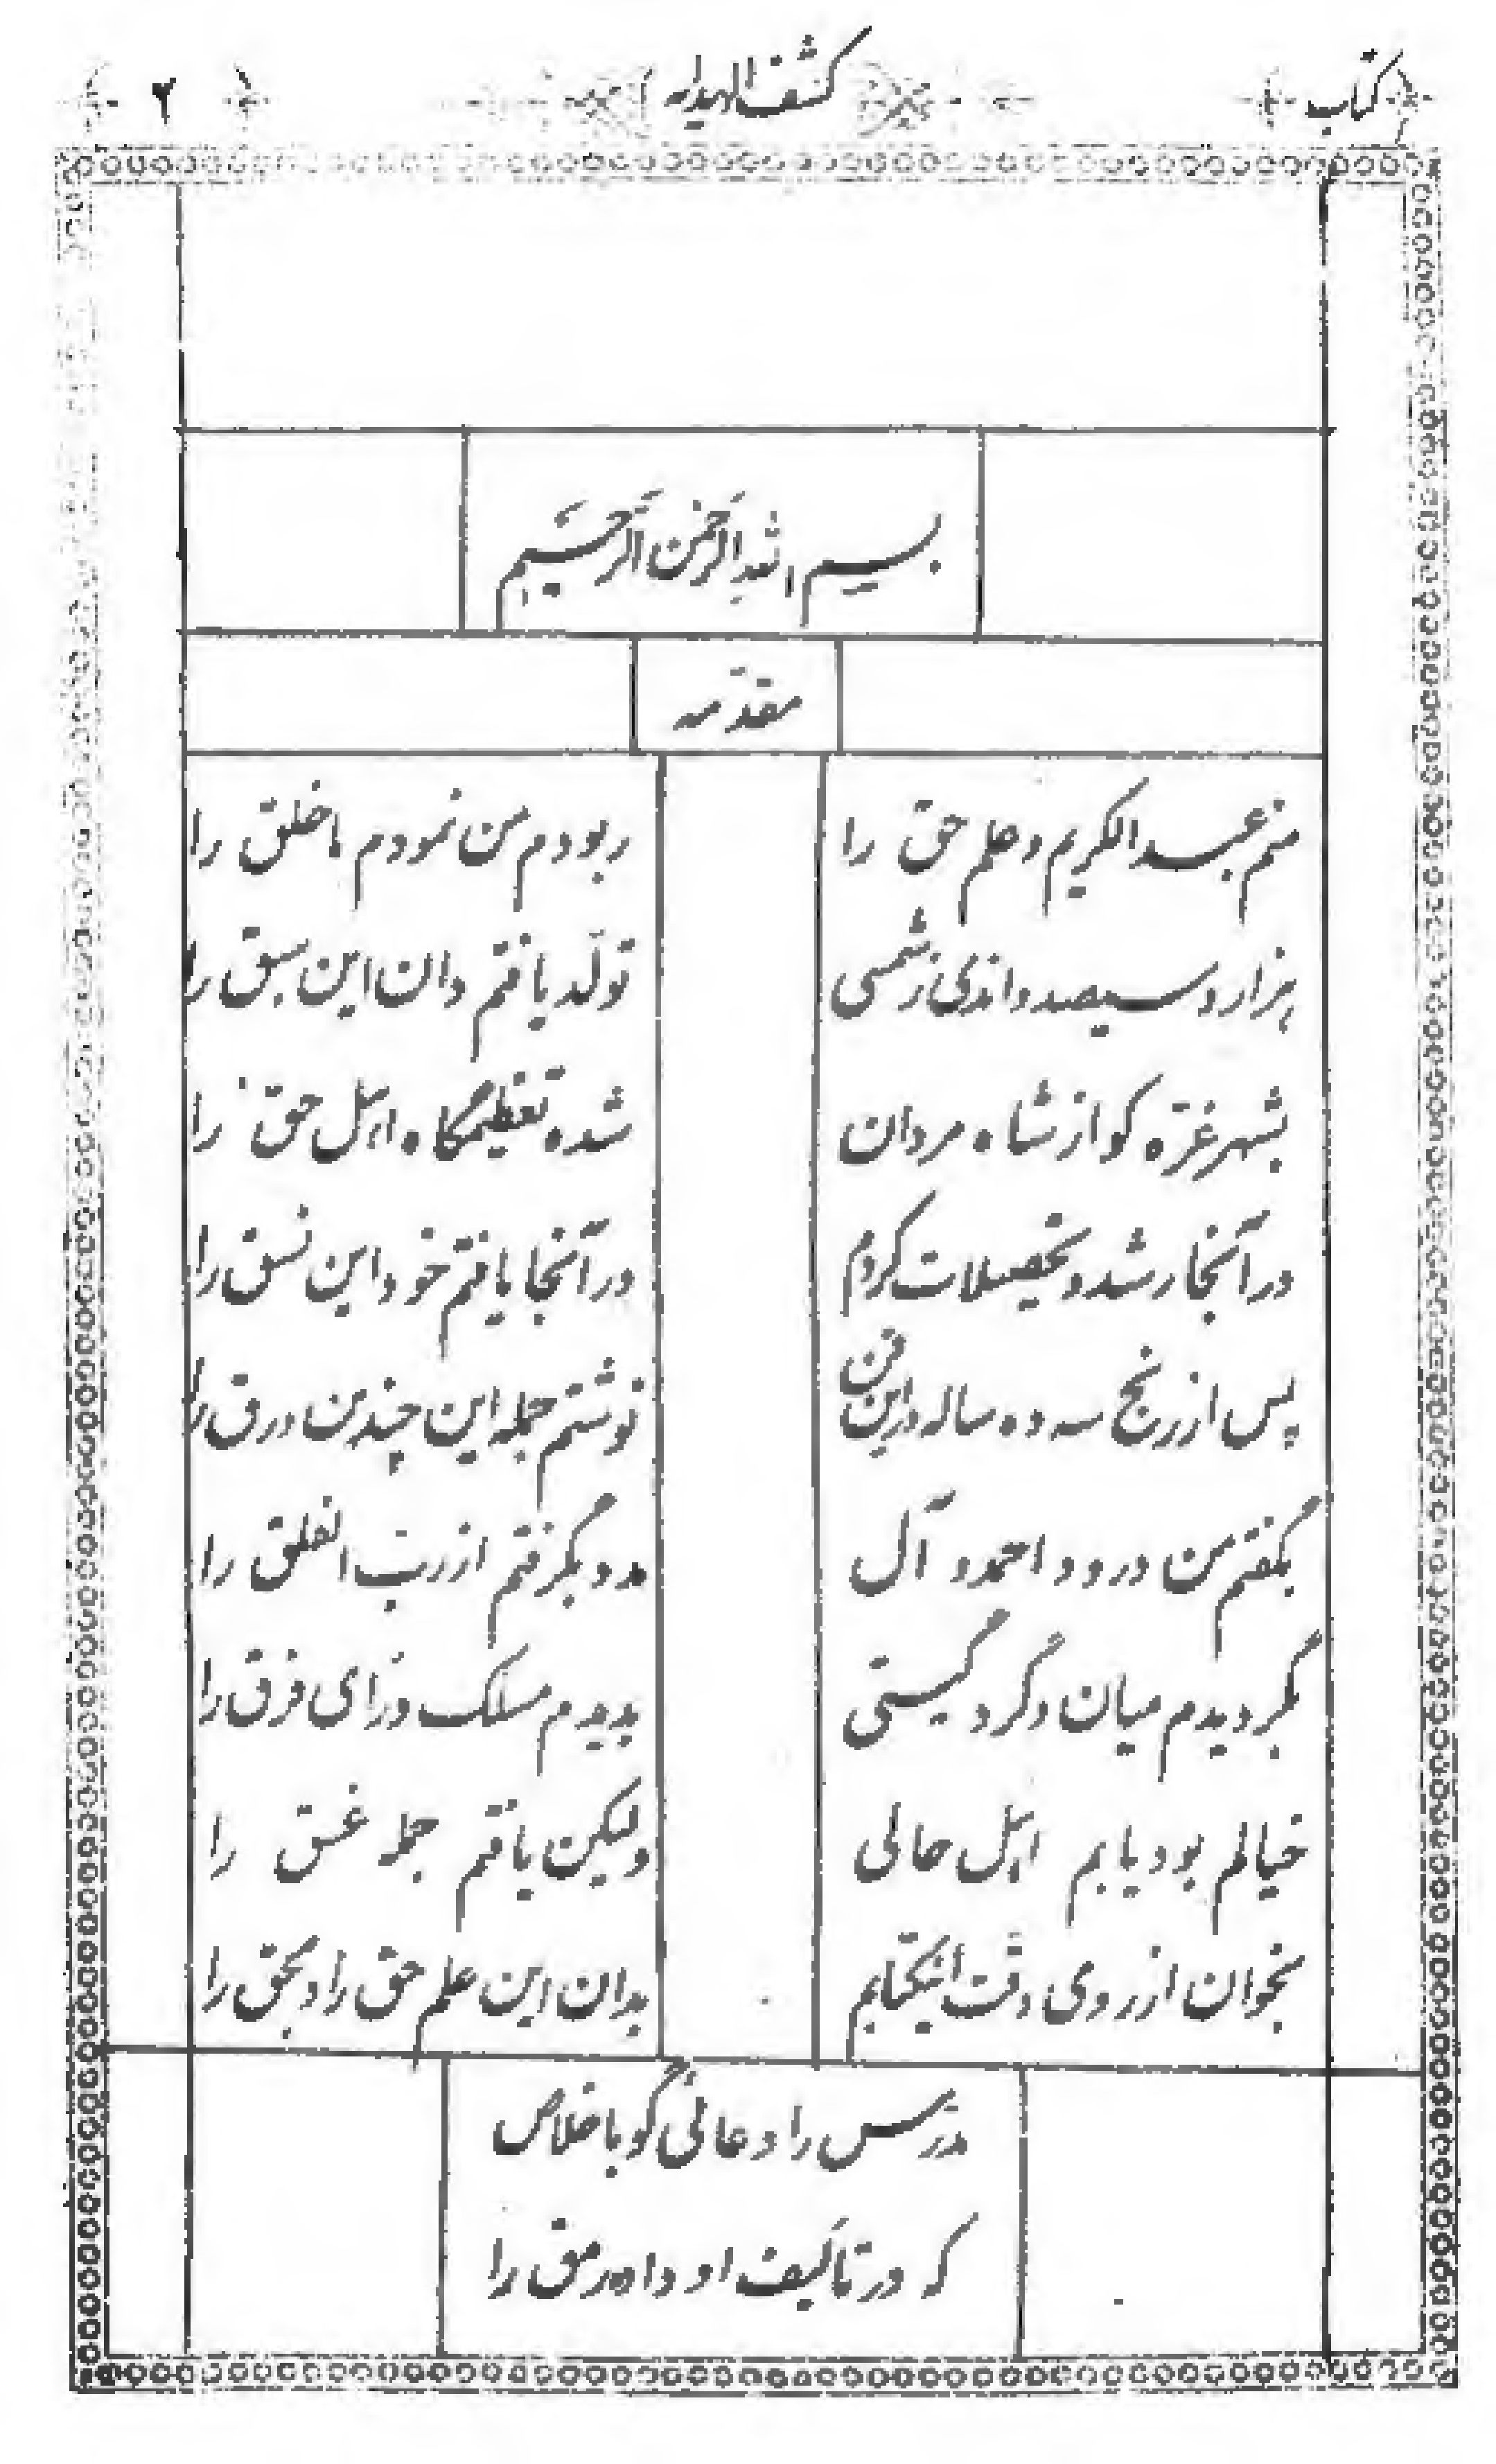 کتاب کشف الهدایه ۲
بسم الله الرحمن الرحیم
مقدمه
منم عبدالکریم و علم حق را ربودم من نمودم ماخلق را
هزار و سیصد و اندکی ز شمسی تولّد یافتم دان این سبق را
بشهر غزّه کو از شاه مردان شده تعظیمگاه اهل حق را
در آنجا رشد و تحصیلات کردم در آنجا یافتم خود این نسق را
پس از رنج سه ده ساله در این فن نوشتم جمله این چندین ورق را
بگفتم من درود احمد و آل مدد بگرفتم از ربّ الفلق را
بگردیدم میان و گرد گیستی بدیدم مسلک و رای فرق را
خیالم بود یابم اهل حالی ولیکن یافتم جمله غسق را
بخوان از روی دقت اینکتابم بدان این علم حق را و بحق را
مدرس را دعائی گو باخلاص
که در تألیف او داده رمق را